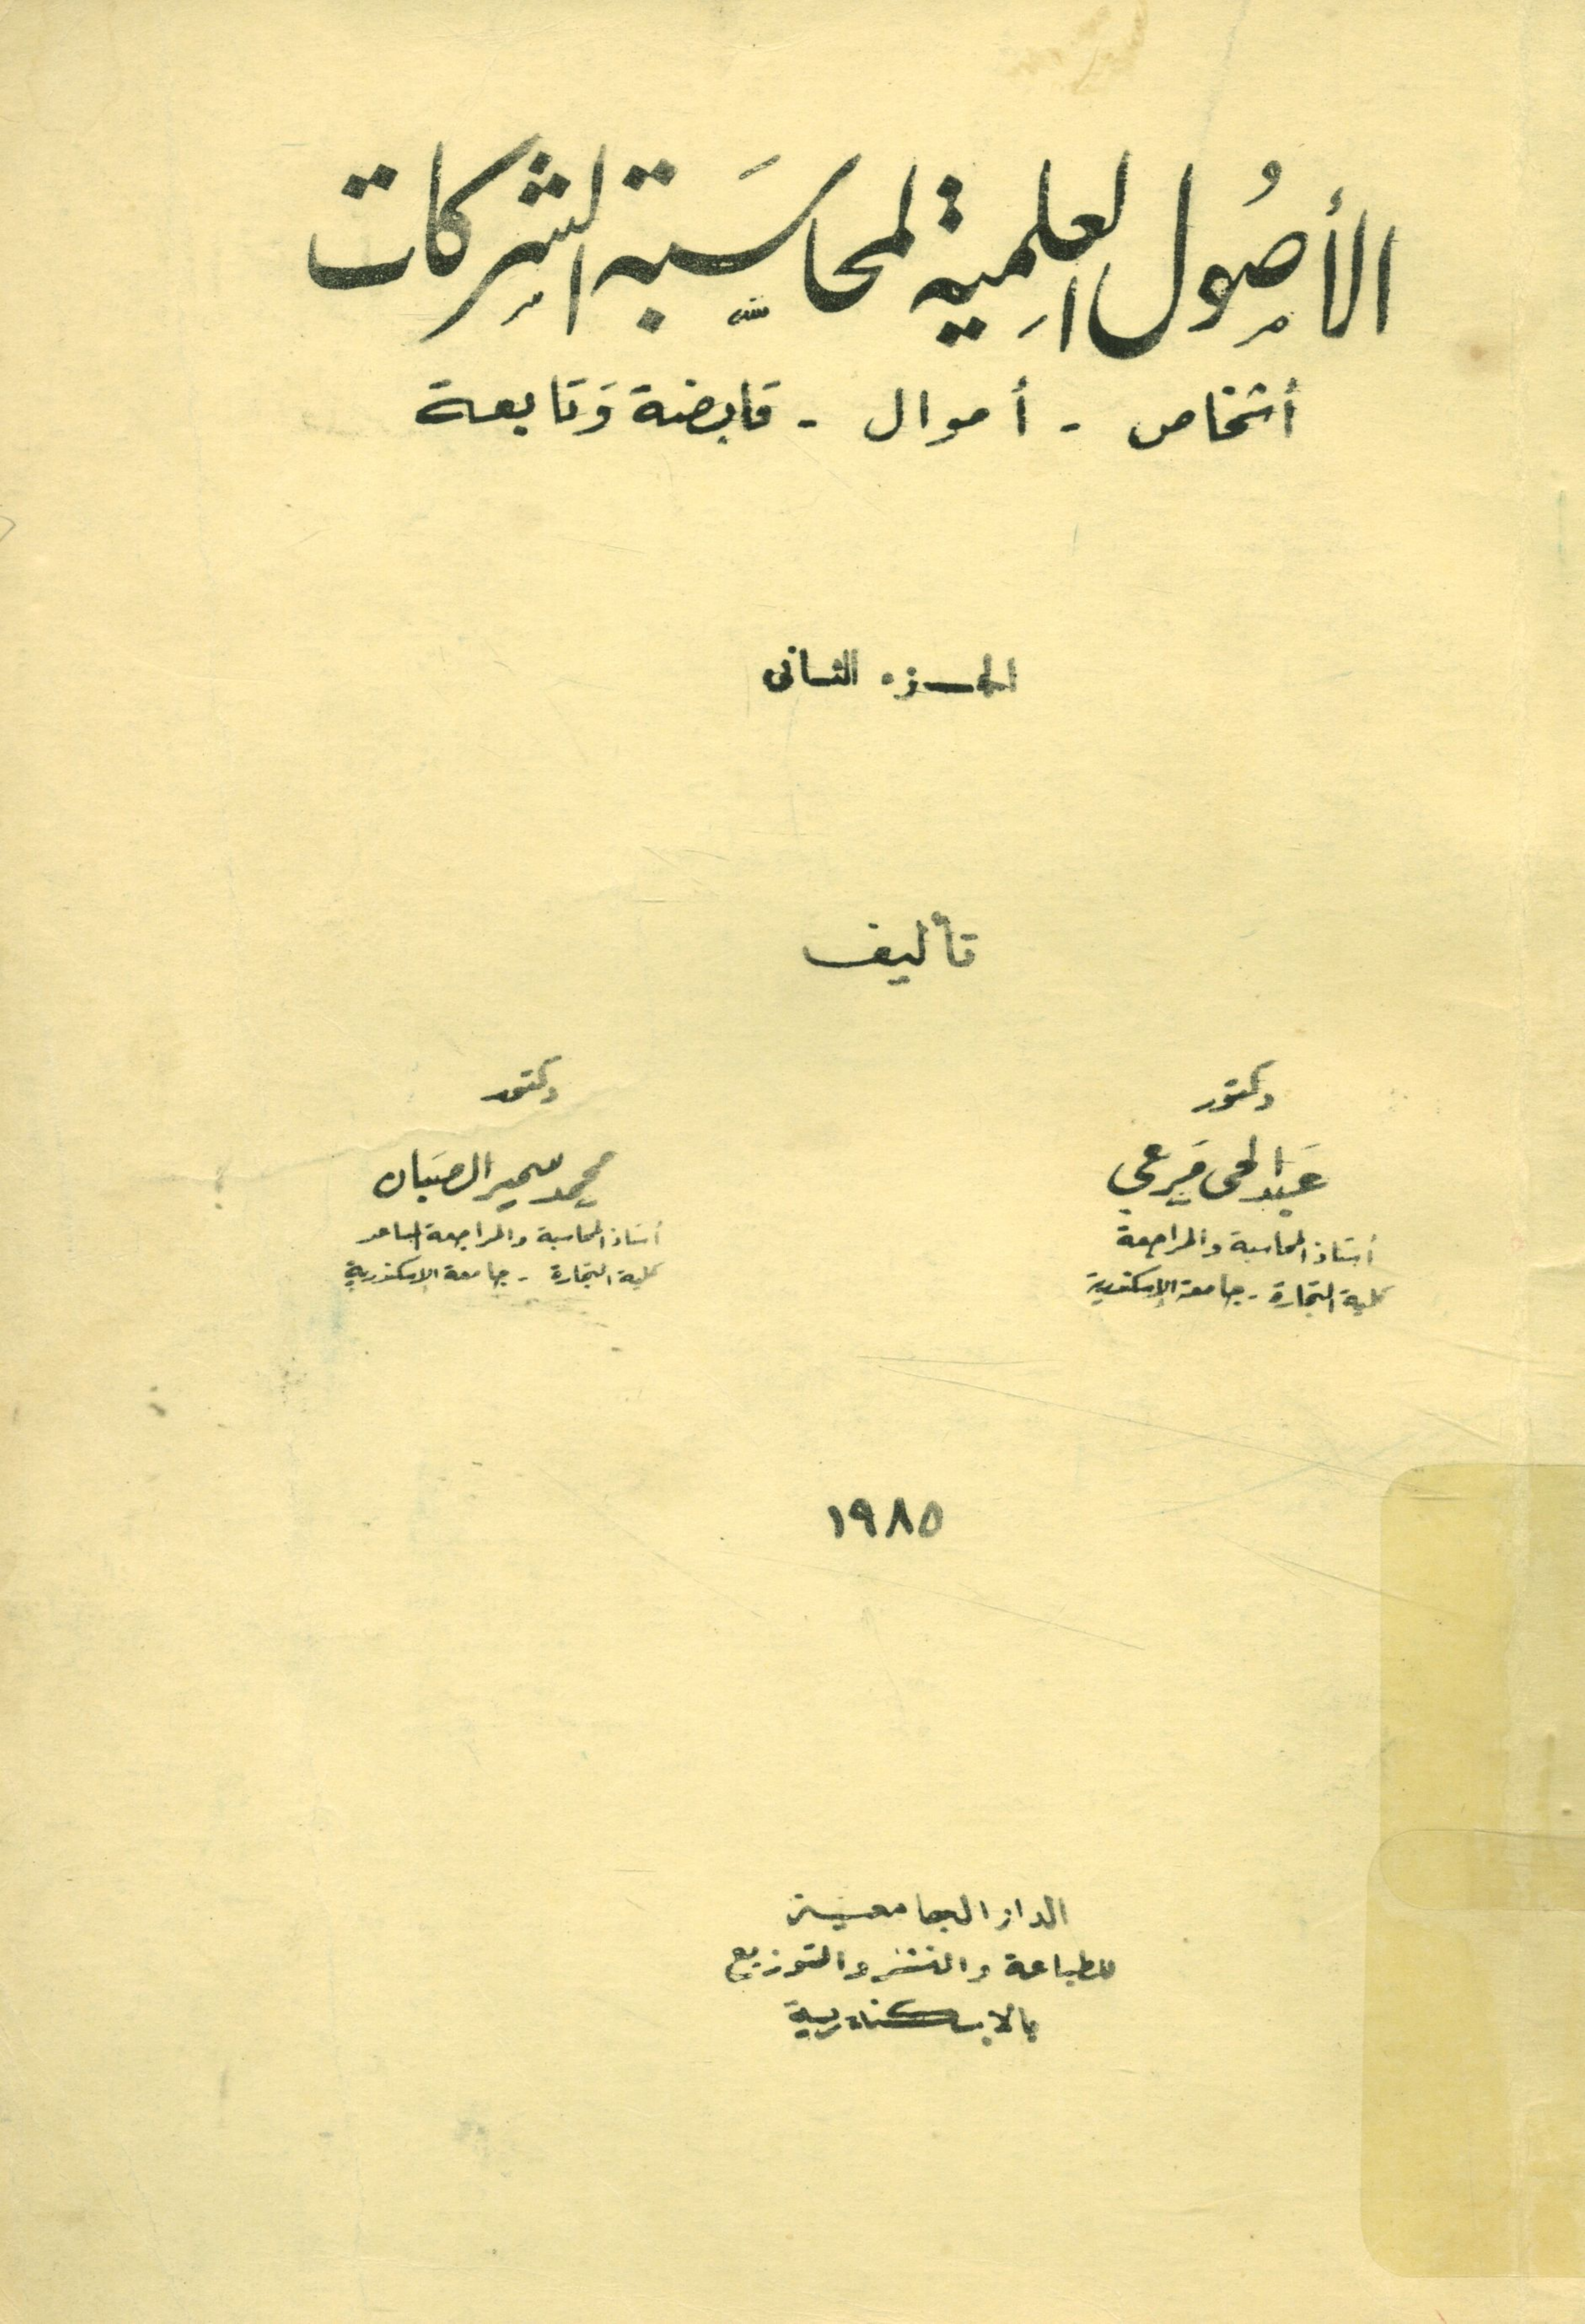 الأصُول العلمِية لمحاسَبة الشِركات
أشخاص - أموال - قابضة وَتابعة
الجزء الثانى
تأليف
دكتور
عَبد الحى مَرعي
أستاذ المحاسبة والمراجعة
كلية التجارة - جامعة الإسكندرية
دكتور
محمد سمير الصَبان
أستاذ المحاسبة والمراجعة المساعد
كلية التجارة - جامعة الإسكندرية
١٩٨٥
الدار الجامعية
للطباعة والنشر والتوزيع
بالاسكندرية